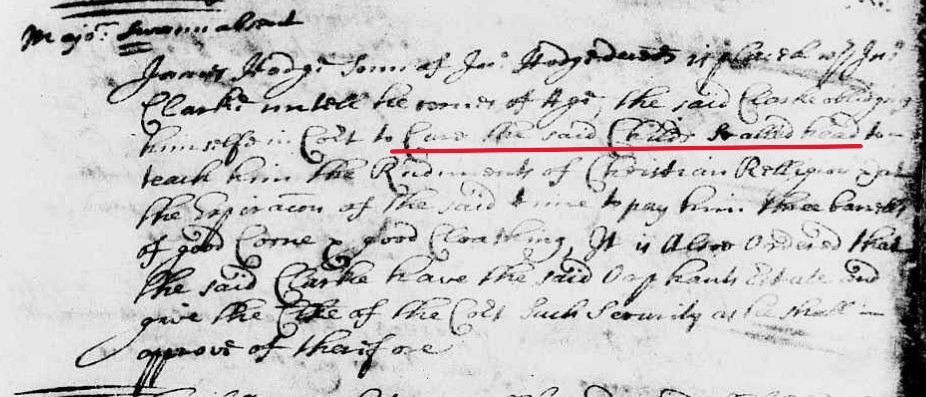 Majo:r Swann absent
James Hodge Sonn of Jno Hodge is placed wth Jno
Clarke untell he comes of Age, the said Clarke obligeing
himselfe in Cort to Cure the said Childs Scalled head to
teach him the Rudiments of Christian Relligion & at
the Expiracon of the said time to pay him three barrells
of good Corne & good Cloathing, It is Also Ordered that
the said Clarke have the said Orphants Estate and
give the Clke of the Cort Such Security as he shall
approve of therefore